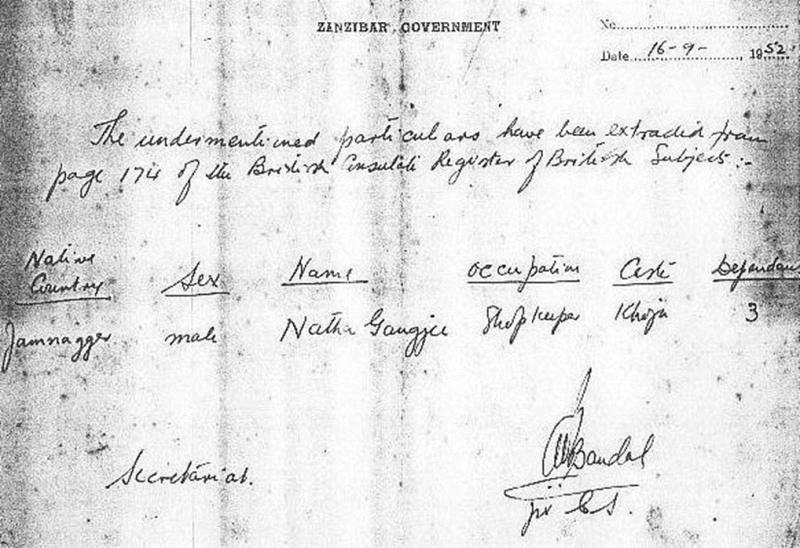 ZANZIBAR GOVERNMENT
No.
Date 16-9- 1952
The undermentioned particulars have been extracted from
page 174 of the British Consulate Register of British Subjects:-
Native Country Sex Name Occupation Caste Dependants
Jamnagger male Natha Gangjee Shopkeeper Khoja 3
Secretariat.